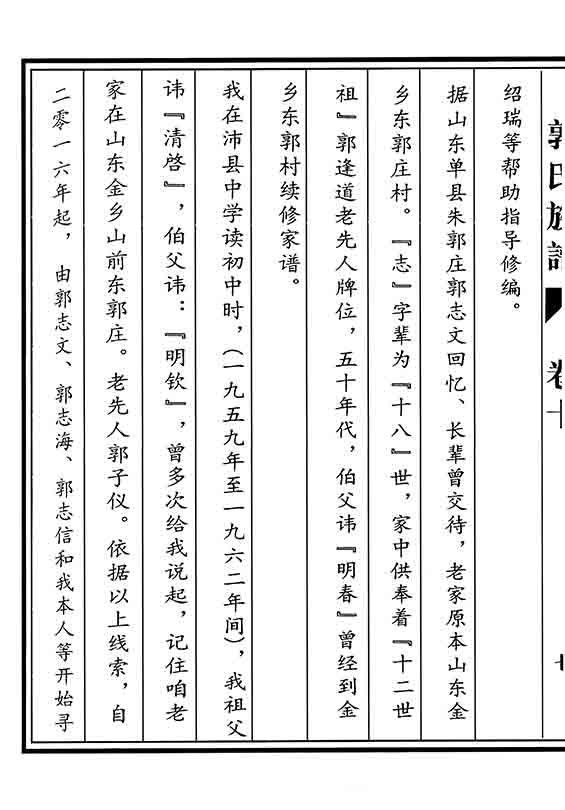 郭氏族譜
卷十
绍瑞等帮助指导修编。
据山东单县朱郭庄郭志文回忆、长辈曾交待，老家原本山东金
乡东郭庄村。『志』字辈为『十八』世，家中供奉着『十二世
祖』郭逢道老先人牌位，五十年代，伯父讳『明春』曾经到金
乡东郭村续修家谱。
我在沛县中学读初中时，（一九五九年至一九六二年间），我祖父
讳『清啓』，伯父讳：『明钦』，曾多次给我说起，记住咱老
家在山东金乡山前东郭庄。老先人郭子仪。依据以上线索，自
二零一六年起，由郭志文、郭志海、郭志信和我本人等开始寻